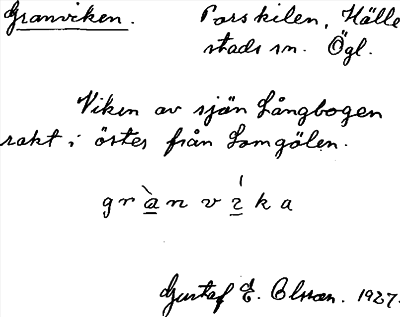 Granviken. Porskilen, Hälle
stads sn. Ögl.
Viken av sjön Långbogen
rakt i öster från Lomgölen.
gràn víka
Gustaf E. Olsson. 1927.